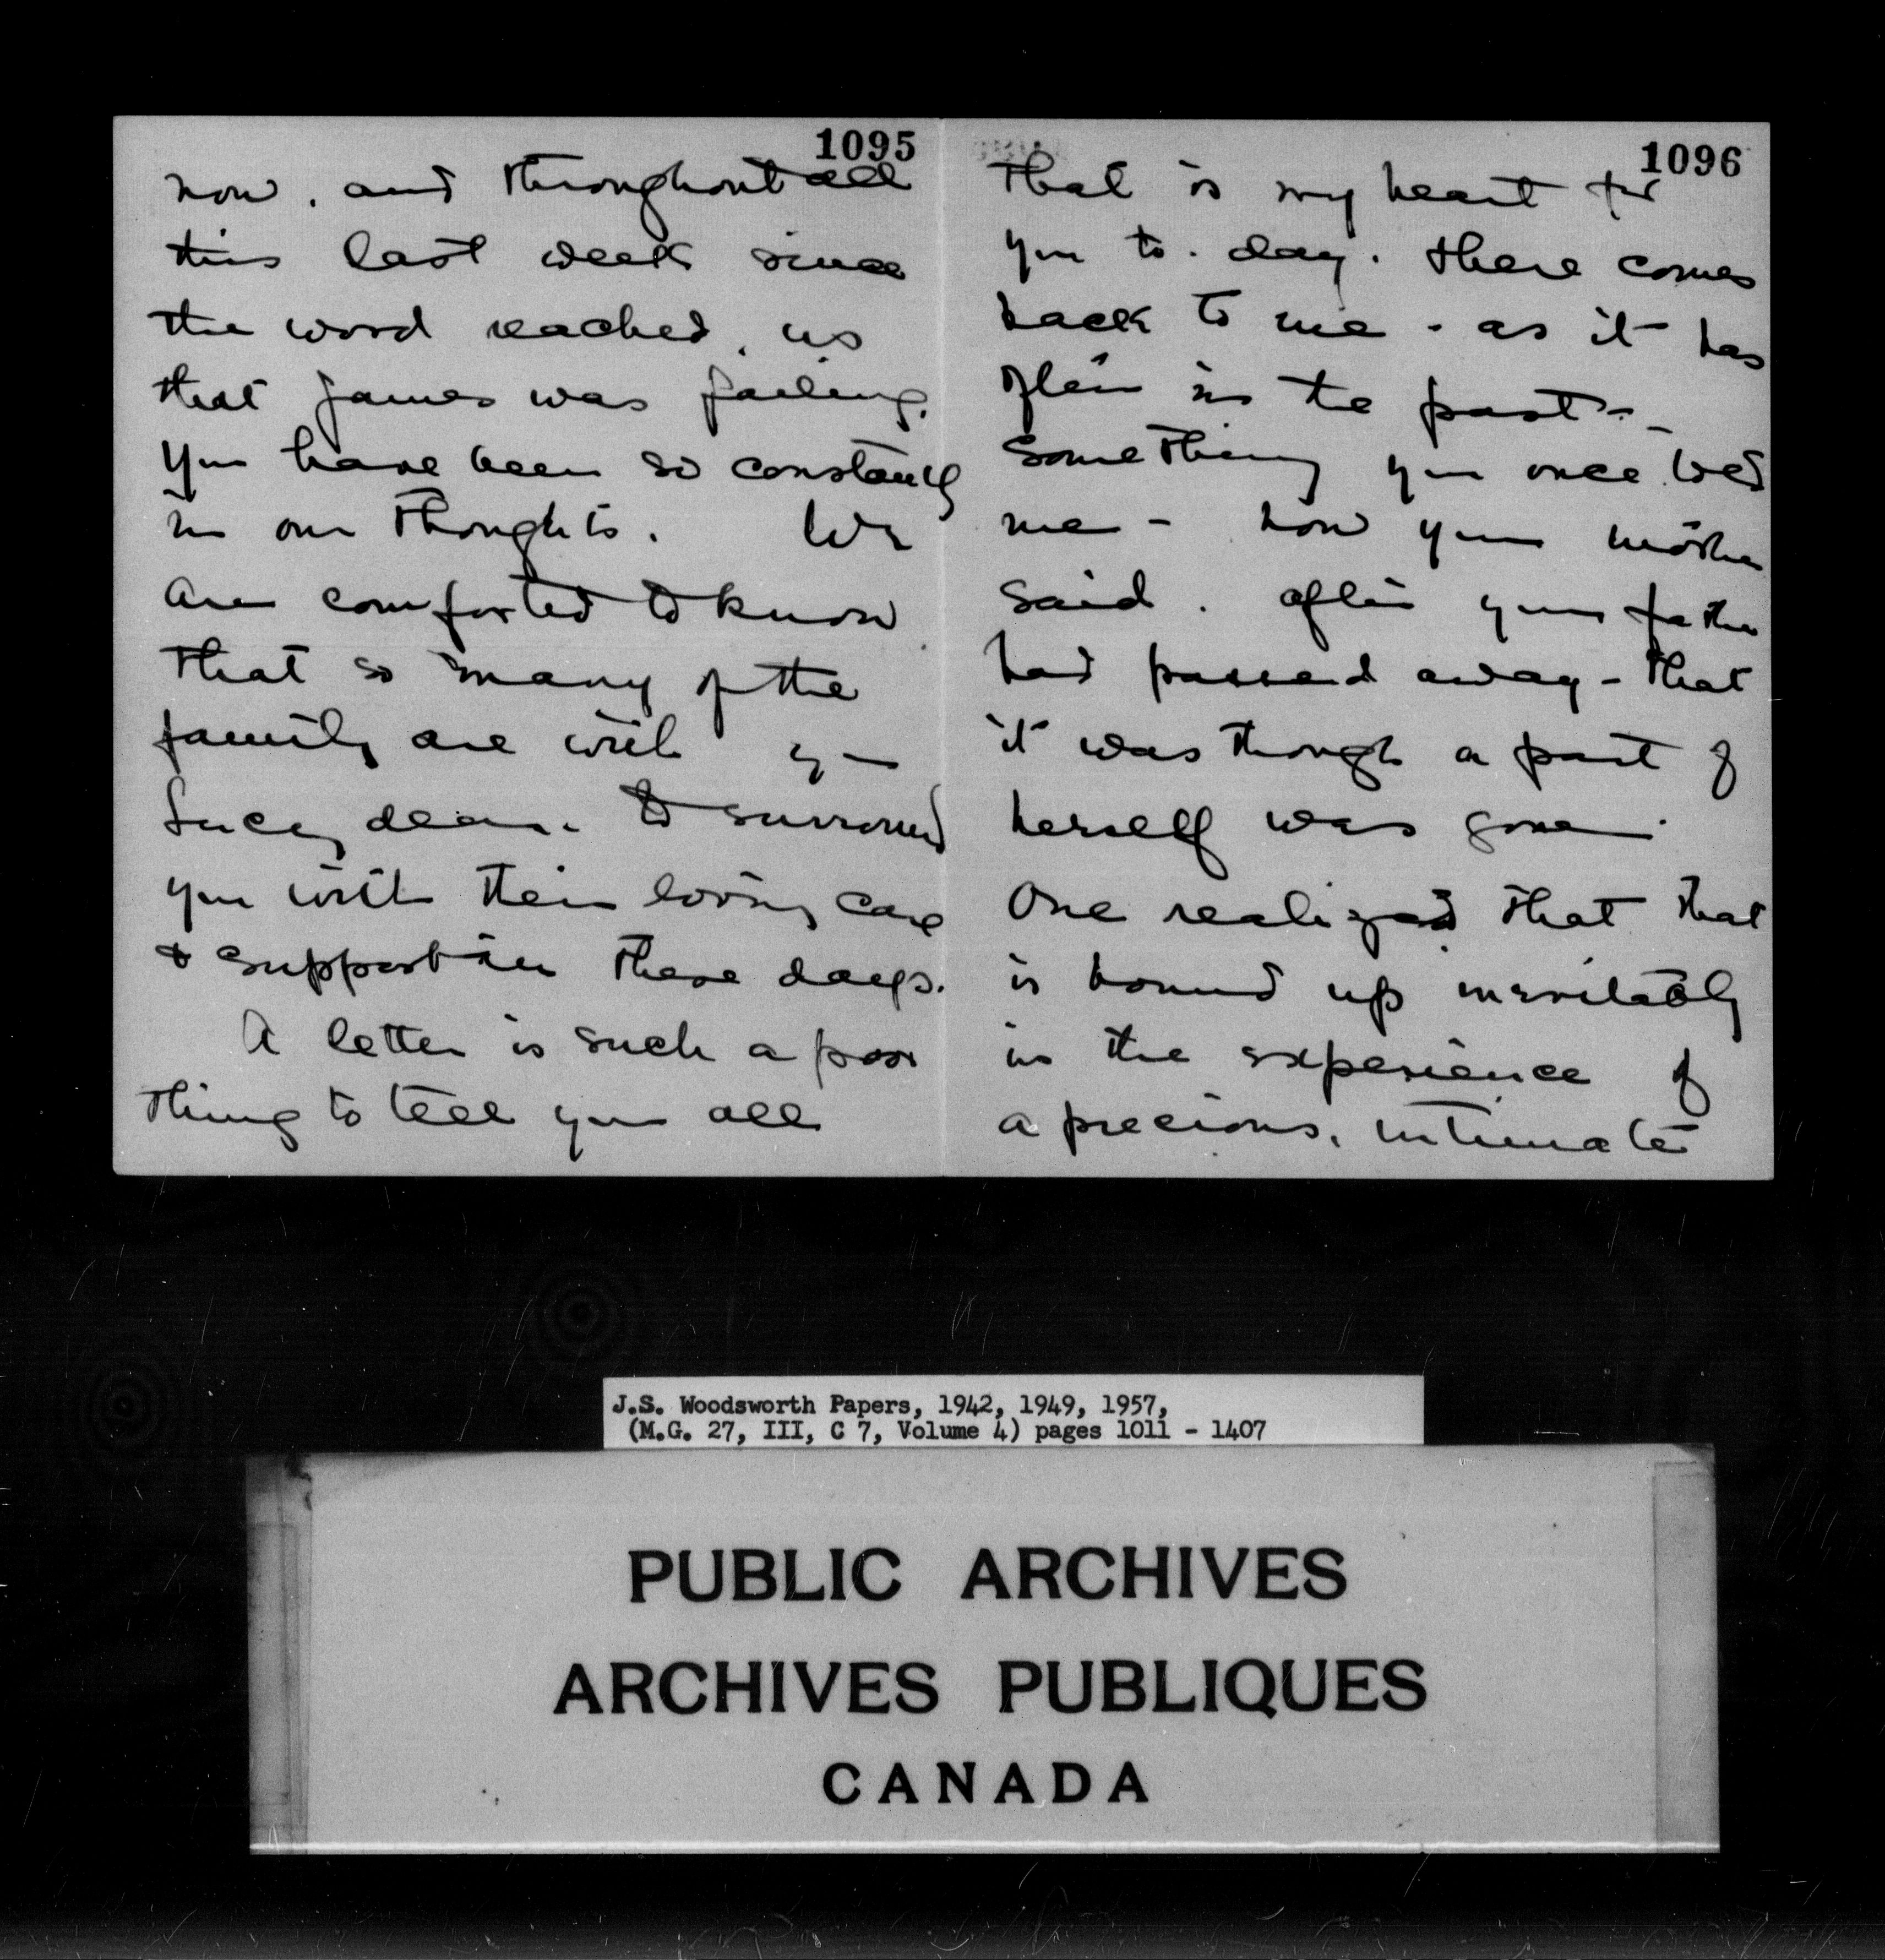 1095
now, and throughout all
this last week since
the word reached us
that James was failing.
You have been so constantly
in our thoughts. We
are comforted to know
that so many of the
family are with you
Lucy dear. to surround
you with their loving care
& support in these days.
A letter is such a poor
thing to tell you all
1096
that is my heart for
you to-day. There comes
back to me - as it has
often in the past -
something you once told
me - how your mother
said. after your father
had passed away - that
it was though a part of
herself was gone.
One realized that that
is bound up inevitably
in the experience of
a precious, intimate
J.S. Woodsworth Papers, 1942, 1949, 1957,
(M.G. 27, III, C 7, Volume 4) pages 1011 - 1407
PUBLIC ARCHIVES
ARCHIVES PUBLIQUES
CANADA